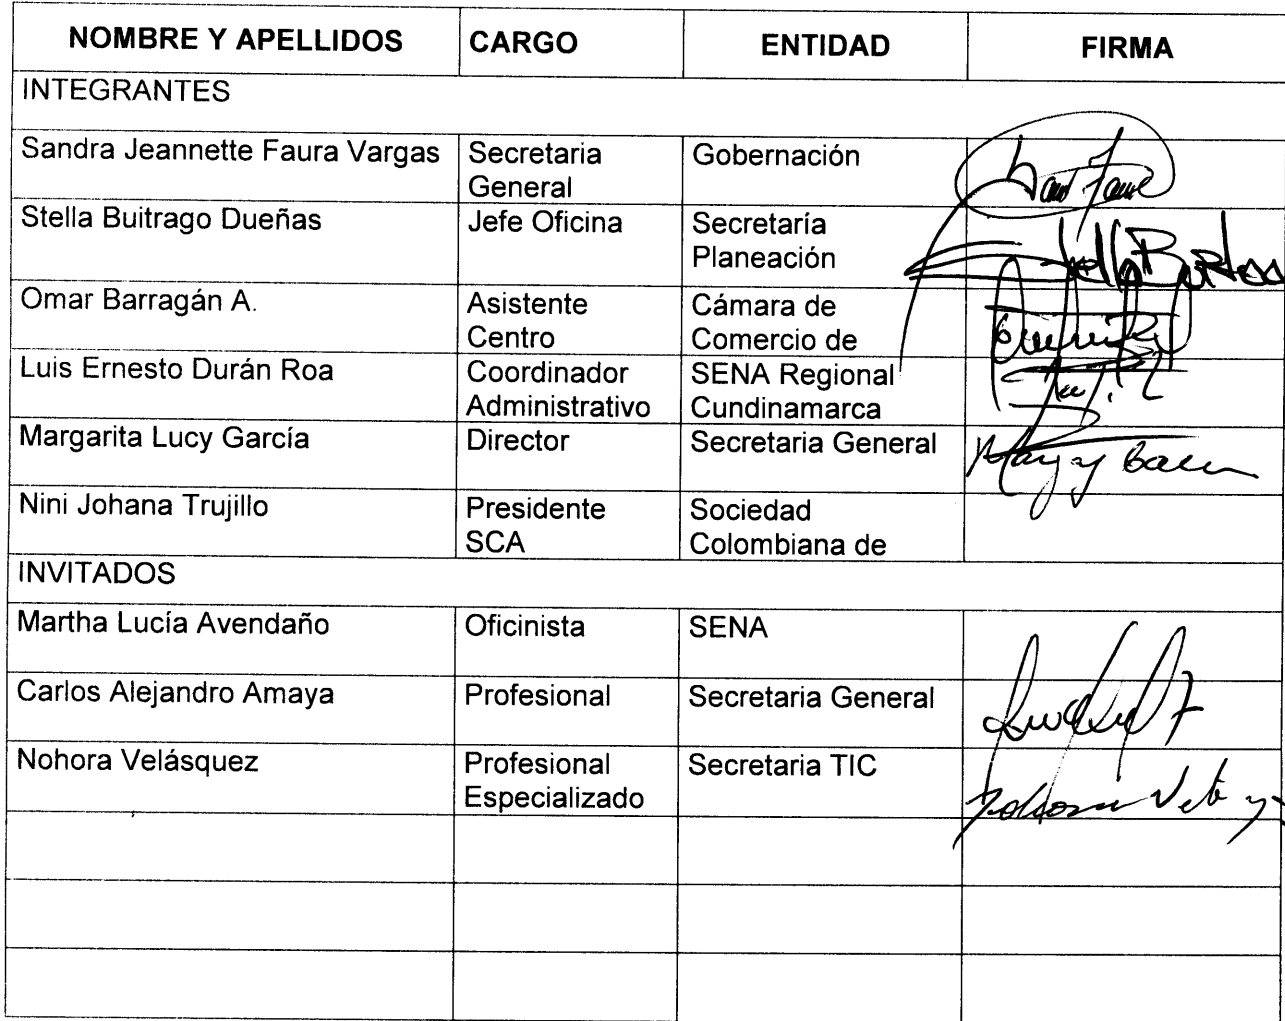 NOMBRE Y APELLIDOS CARGO ENTIDAD FIRMA
INTEGRANTES
Sandra Jeannette Faura Vargas Secretaria Gobernación
General
Stella Buitrago Dueñas Jefe Oficina Secretaría
Planeación
Omar Barragán A. Asistente Cámara de
Centro Comercio de
Luis Ernesto Durán Roa Coordinador SENA Regional
Administrativo Cundinamarca
Margarita Lucy García Director Secretaria General
Nini Johana Trujillo Presidente Sociedad
SCA Colombiana de
INVITADOS
Martha Lucía Avendaño Oficinista SENA
Carlos Alejandro Amaya Profesional Secretaria General
Nohora Velásquez Profesional Secretaria TIC
Especializado